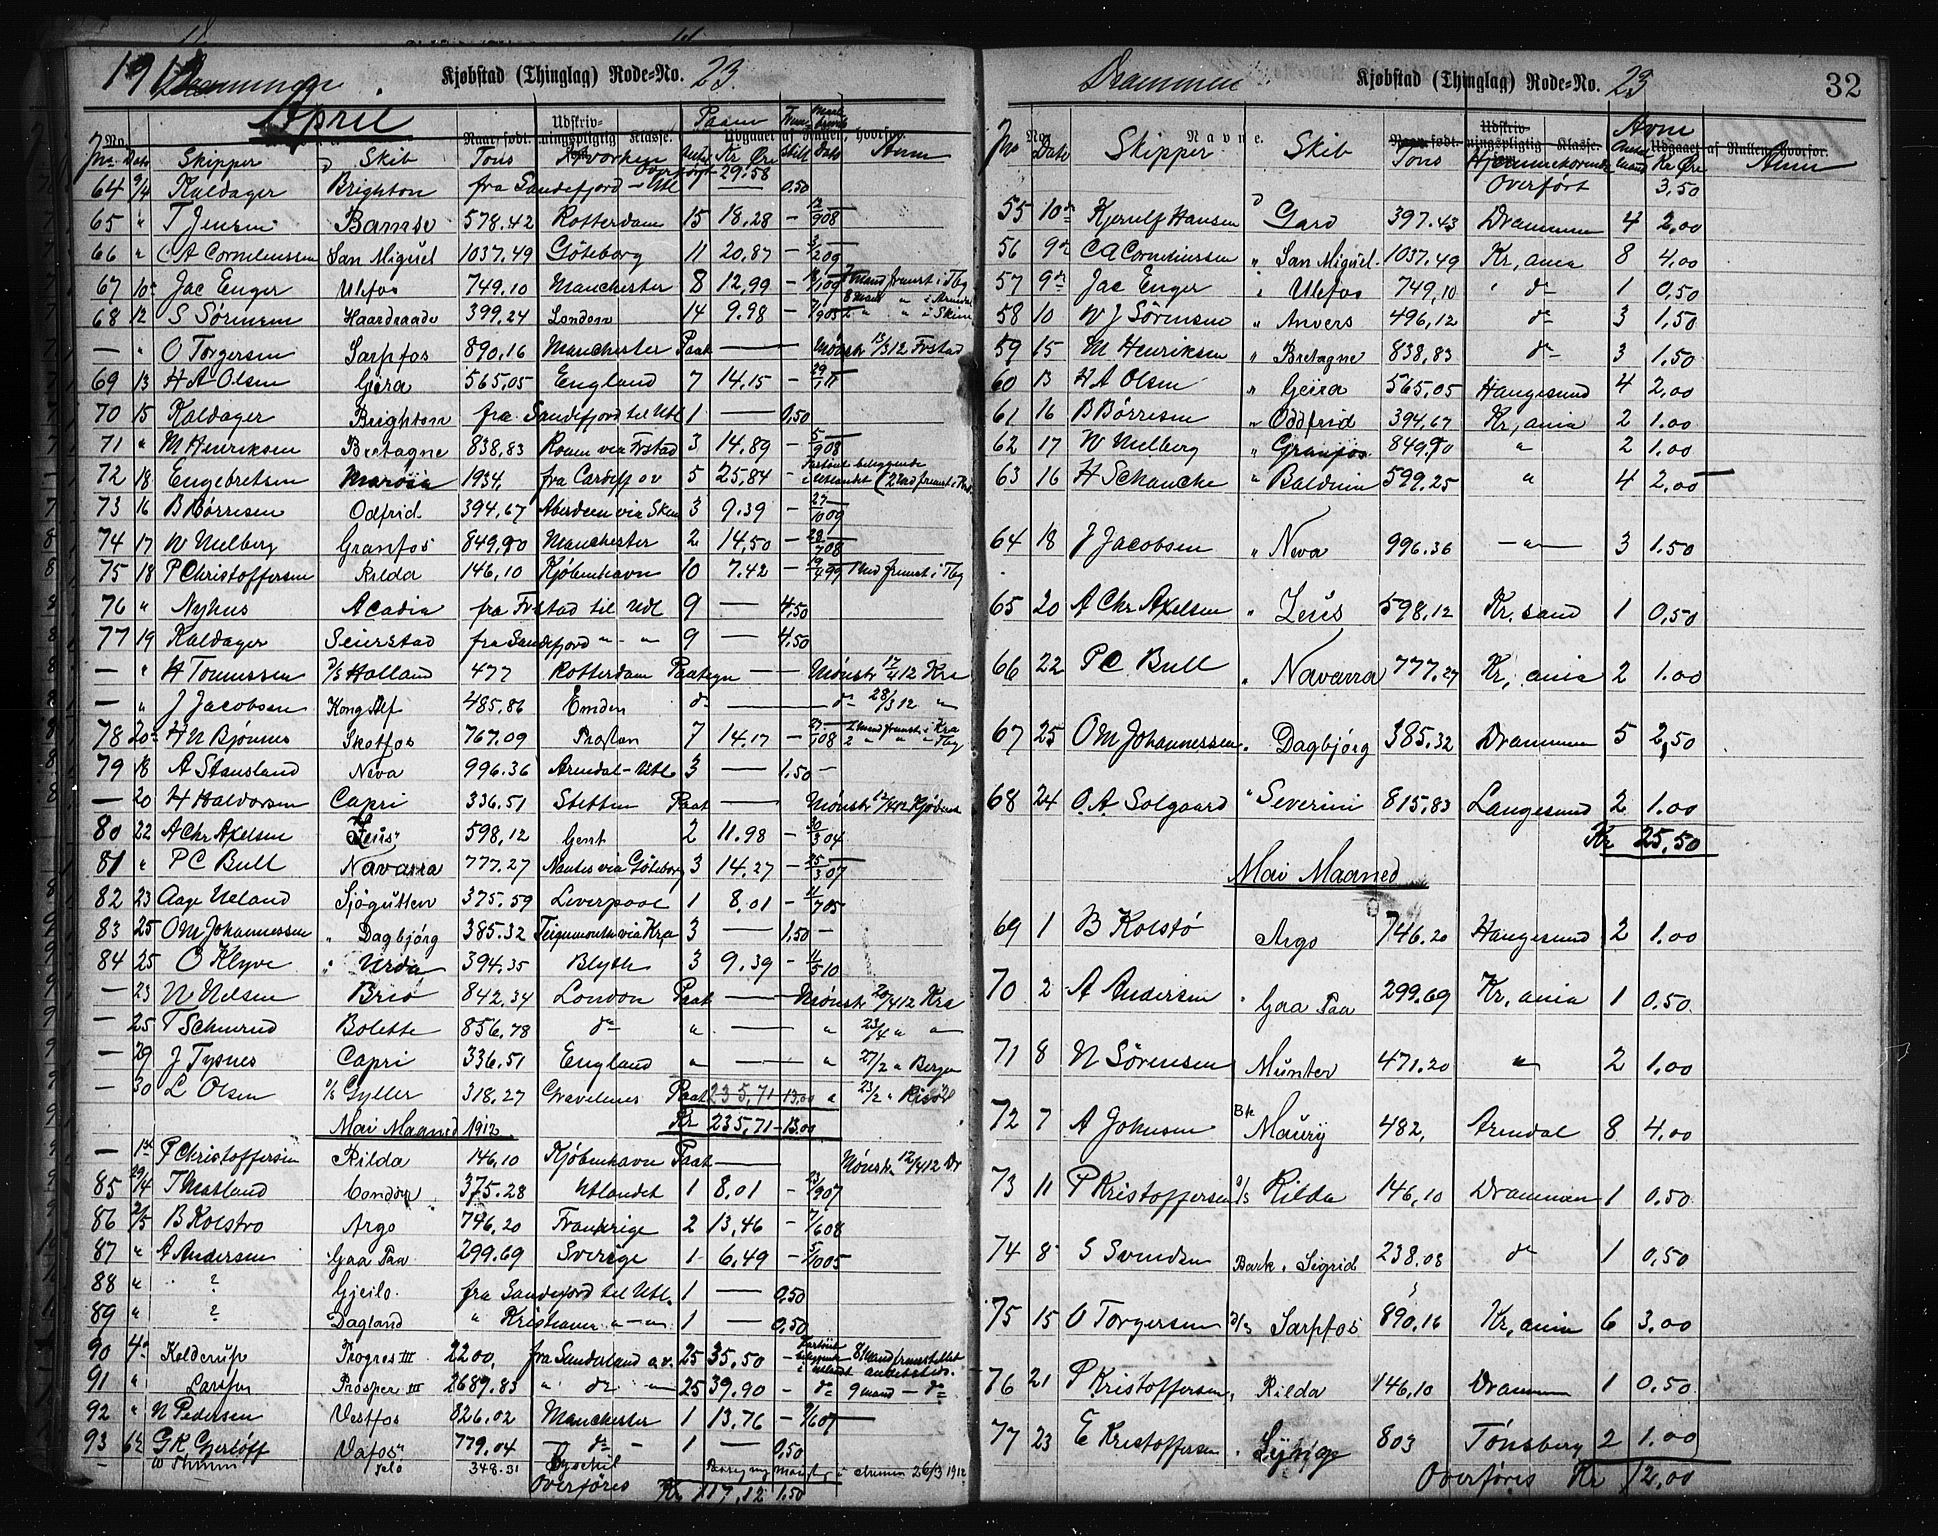 1912 Drammen Kjøbstad (Thinglag) Rode=No. 23.
April
No. Naar født. Udskriv-ningspligtig Klasse. Paam Udgaaet af Rullen, hvorfor.
No Dato Skipper Skib Tons Hvorhen Kr Øre Dato Anm
Overført 29.58
64 9/4 Kaldager Brighton fra Sandefjord - Utl 1 — 0,50
65 " T Jensen Bamse 578.42 Rotterdam 15 18.28 - 12/908
66 " C A Corneliussen San Miguel 1037.49 Göteborg 11 20,87 - 3/209
67 10 Jac Enger Ulefos 749.10 Manchester 8 12,99 - 18/109 2 Mand frmst i Tbg
68 12 S Sörensen Haardraade 399.24 London 14 9.98 - 7/905
— " O Torgersen Sarpfos 890,16 Manchester Paat — Mønstr 15/312 Frstad
69 13 H A Olsen Geira 565,05 England 7 14,15 - 29/1 11
70 15 Kaldager Brighton fra Sandefjord til Utl 1 — 0,50
71 " M Henriksen Bretagne 838,83 Rouen via Frstad 3 14.89 - 5/908
72 18 Engebretsen Marösa 1934. fra Cardiff ov 5 25,84 - Kartönt beliggende i utlandet
73 16 B Börresen Odfrid. 394,67 Aberdeen via Skien 3 9.39 - 27/10 09
74 17 W Melberg Granfos 849,90 Manchester 2 14,50 - 28/708
75 18 P Christoffersen Rilda 146,10 Kjöbenhavn 10 7.42 - 19/499 1 Md frmst i Tbg
76 " Nyhus Acadia fra Frstad til Utl 9 — 4,50
77 19 Kaldager Seierstad fra Sandefjord " - " 9 — 4,50
— " H Tönnessen D/S Holland 477 Rotterdam Paategn — — Mønstr 17/412 Kra
— " J Jacobsen Kong Alf 485.86 Emden do — do 28/312 "
78 20 H N Bjønnes Skotfos 767.09 7 14.17 - 27/108 2 Mand frmst i Kra 2 " " - Tbg
79 18 A Stausland Neva 996.36 Arendal - Utl 3 — 1.50 -
— 20 H Haldorsen Capri 336.51 Stettin Paat — Mønstr 12/412 Kjöbenh
80 22 A Chr Axelsen Zeus 598,12 Gent 2 11.98 - 30/304
81 " P C Bull Navarra 777.27 Nantes via Göteborg 3 14.27 - 25/307
82 23 Aage Ueland Sjøgutten 375.59 Liverpool 1 8,01 - 11/705
83 25 O M Johannessen " Dagbjörg 385.32 Teignmouth via Kra 3 — 1.50 -
84 25 O Klyve " Urda 394.35 Blyth 3 9.39 - 11/510
— 23 N Nelsen Brio 842,34 London Paat — Mønstr 20/412 Kra
— 25 T Schmrud Bolette 856,78 do " — " 23/4 " "
— 29 J Tysnes Capri 336.51 England " — " 27/2 " Bergen
— 30 L Olsen D/S Gyller 318.27 Gravelines Paat 235,71 - 13,00 " 23/2 "
Mai Maaned 1912 Kr 235,71 - 13.00
— 1st P Christoffersen Rilda 146,10 Kjöbenhavn Paat — Mønstr 12/412 Dr
85 29/4 T Matland Condor 375.28 Utlandet 1 8.01 - 23/907
86 2/5 B Kolstro Argo 746.20 Frankrige 2 13,46 - 7/608
87 " A Andersen Gaa Paa 299.69 Sverige 1 6,49 - 5/1005
88 " ? Gjeilo. fra Sandefjord til Utl. 1 — 0,50
89 " ? Dagland " Kristiansn " — " 1 — 0,50
90 4 Kolderup Progres III 2200, fra Sunderland o.v. 25 35,50 - 8 Mand frmstillet andetsteds.
91 " Larsson Prosper III 2689.83 " do " 25 39.90 - do 9 mand - do
92 " N Pedersen Vestfos 826.02 Manchester 1 13,76 - 9/607
93 6 G K Gjerlöff Vafos" 779.04 - do - 1 — 0,50
348.31 26/3 1912
Overføres Kr 117,12 1,50
Drammen Kjøbstad (Thinglag) Rode=No. 23 32
No. Navne. Naar født. Udskriv-ningspligtig Klasse. Avm Udgaaet af Rullen, hvorfor.
No Dato Skipper Skib Tons Hjemmehørende Antal mand Kr Øre Anm
Overført 3,50
55 10 Kjerulf Hansen D Gard 397.43 Drammen 4 2,00
56 9 C A Corneliussen " San Miguel. 1037.49 Kr,ania 8 4,00
57 9 Jac Enger " Ulefos 749,10 " do 1 0,50
58 10 W J Sörensen " Anvers 496,12 do 3 1,50
59 15 M Henriksen " Bretagne 838,83 do 3 1.50
60 13 H A Olsen " Geira 565,05 Haugesund 4 2,00
61 16 B Börresen " Oddfrid 394,67 Kr,ania 2 1.00
62 17 W Melberg " Granfos 849,90 " 2 1.00
63 16 H Schancke " Balduin 599.25 " 4 2,00
64 18 J Jacobsen " Neva 996.36 — " — 3 1.50
65 20 A Chr Axelsen " Zeus 598,12 Kr,sand 1 0,50
66 22 P C Bull " Navarra 777.27 Kr, ania 2 1.00
67 25 O M Johannessen " Dagbjórg 385.32 Drammen 5 2,50
68 24 O. A. Solgaard " Severini 815,83 Langesund 2 1.00
Kr 25,50
Mai Maaned
69 1 B Kolstø Argo 746.20 Haugesund 2 1.00
70 2 A Andersen " Gaa Paa 299.69 Kr, ania 1 0,50
71 8 N Sørensen Munter 471.20 " 2 1.00
72 7 A Johnsen Bk Maury 482, Arendal 8 4,00
73 11 P Kristoffersen D/S Rilda 146,10 Drammen 1 0,50
74 8 S Svendsen Bark " Sigrid 238.08 do 1 0,50
75 15 O Torgersen D/S Sarpfos 890.16 Kr, ania 6 3.00
76 21 P Kristoffersen " Rilda 146,10 Drammen 1 0.50
77 23 E Kristoffersen " 803 Tönsberg 2 1.00
Overføres Kr 12.00